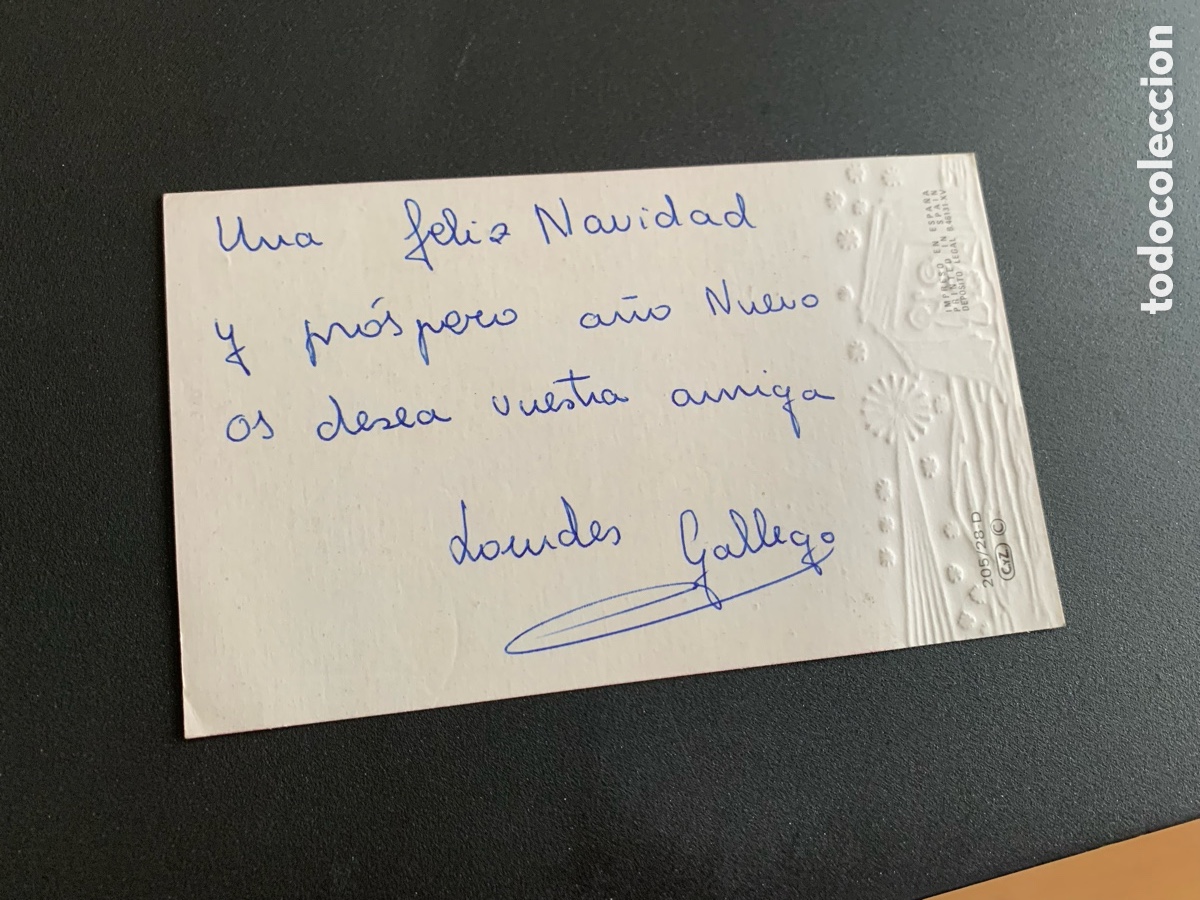 Una feliz Navidad
y próspero año Nuevo
os desea vuestra amiga
Lourdes Gallego
IMPRESO EN ESPAÑA
PRINTED IN SPAIN
DEPOSITO LEGAL B.40131-XV
205/28-D
CyZ ©
todocoleccion